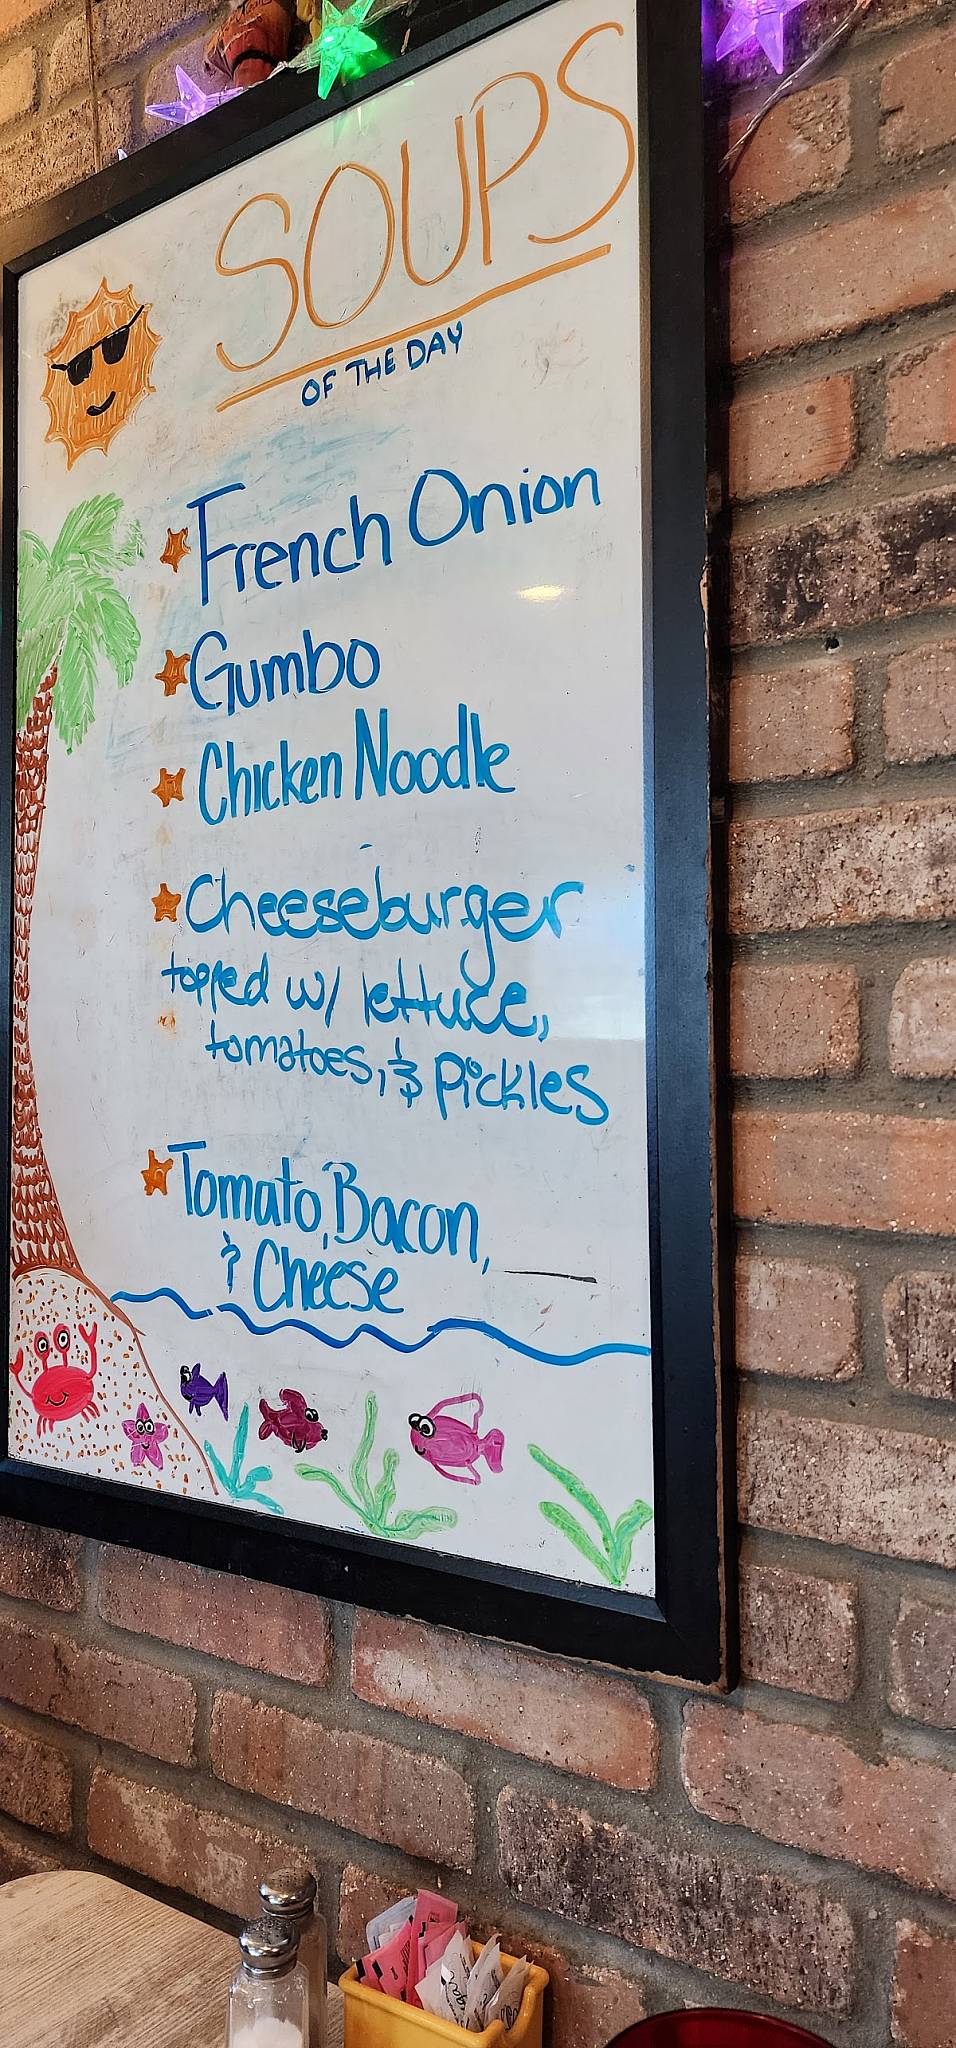 SOUPS
OF THE DAY
French Onion
Gumbo
Chicken Noodle
Cheeseburger
topped w/ lettuce,
tomatoes, & Pickles
Tomato, Bacon,
& Cheese